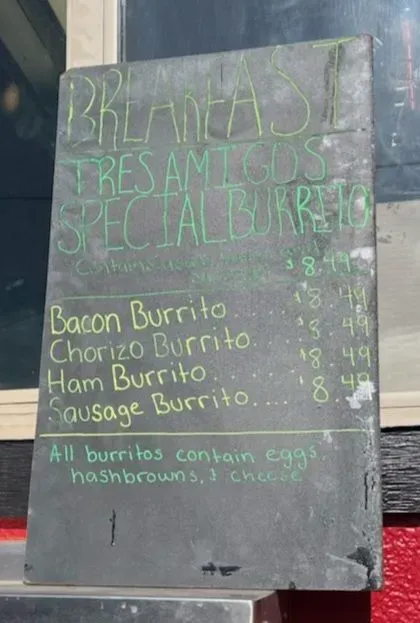 BREAKFAST
TRES AMIGOS
SPECIAL BURRITO
Contains bacon,
$8.49
Bacon Burrito .... $8.49
Chorizo Burrito. ... $8.49
Ham Burrito .... $8.49
Sausage Burrito.... 8.49
All burritos contain eggs,
hashbrowns, & cheese